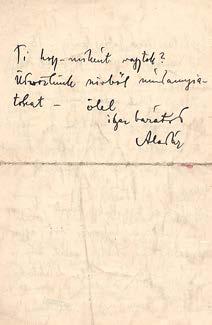 Ti hogy-miként vagytok?
Üdvözlünk szívből mindannyia-
tokat – ölel
igaz barátod
Aladár